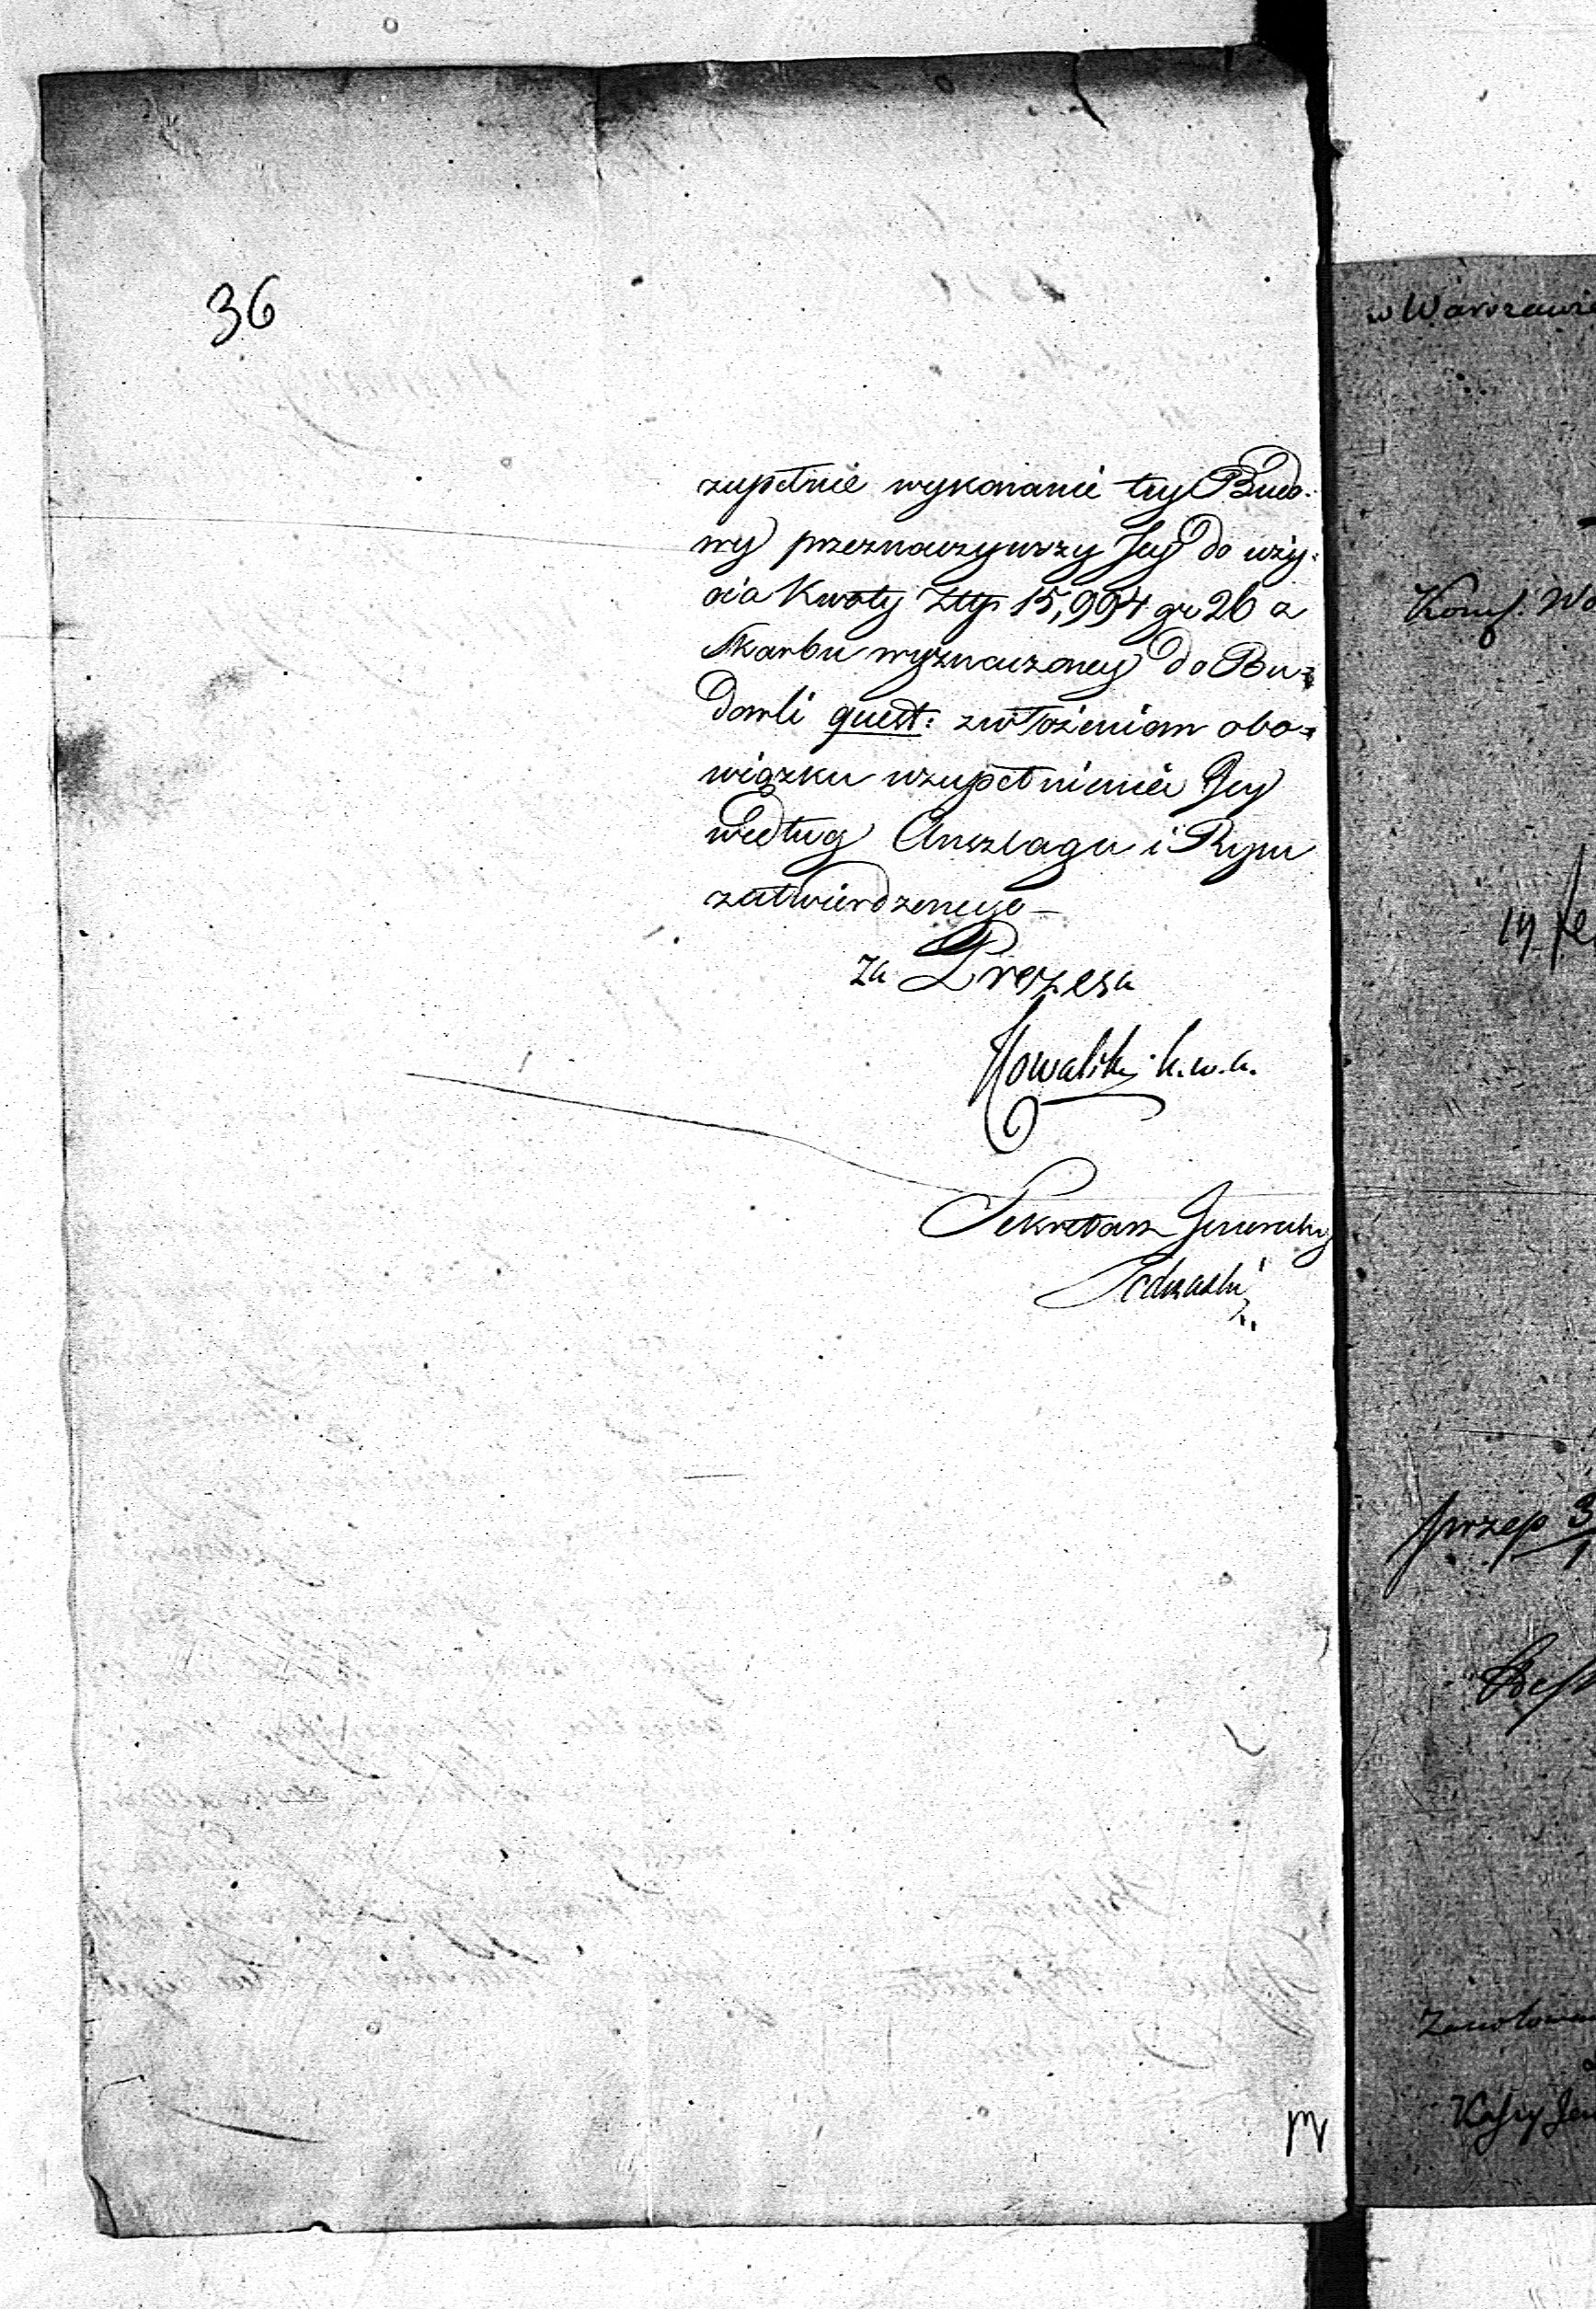 36
zupełnie wykonanie tey Budo-
wy przeznaczywszy Jey do uży-
cia Kwoty Złłp. 15,994 gr 26 a
Skarbu wyznaczoney do Bu-
dowli quest: zwłożeniem obo-
wiązku uzupełnienia Jey
według Anszlagu i Rysu
zatwierdzonego —
za Prezesa
Kowalski k.w.k.
Sekretarz Jeneralny
w Warszawie
Komſ: Wo
19
przep 3
Kaſsy Jen